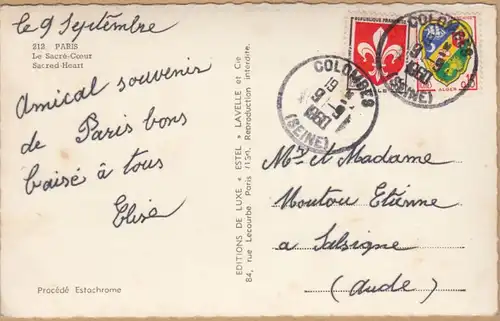 le 9 Septembre
212 PARIS
Le Sacré-Cœur
Sacred-Heart
Amical souvenir
de Paris bons
baisé à tous
Elise
Procédé Estachrome
EDITIONS DE LUXE « ESTEL » LAVELLE et Cie
84, rue Lecourbe. Paris (15e). Reproduction interdite.
REPUBLIQUE FRANÇAISE
ALGER
COLOMBES
19 H
9-9
1960
(SEINE)
COLOMBES
9-9
1960
(SEINE)
Mr et Madame
Moutou Etienne
a Salsigne
(Aude)